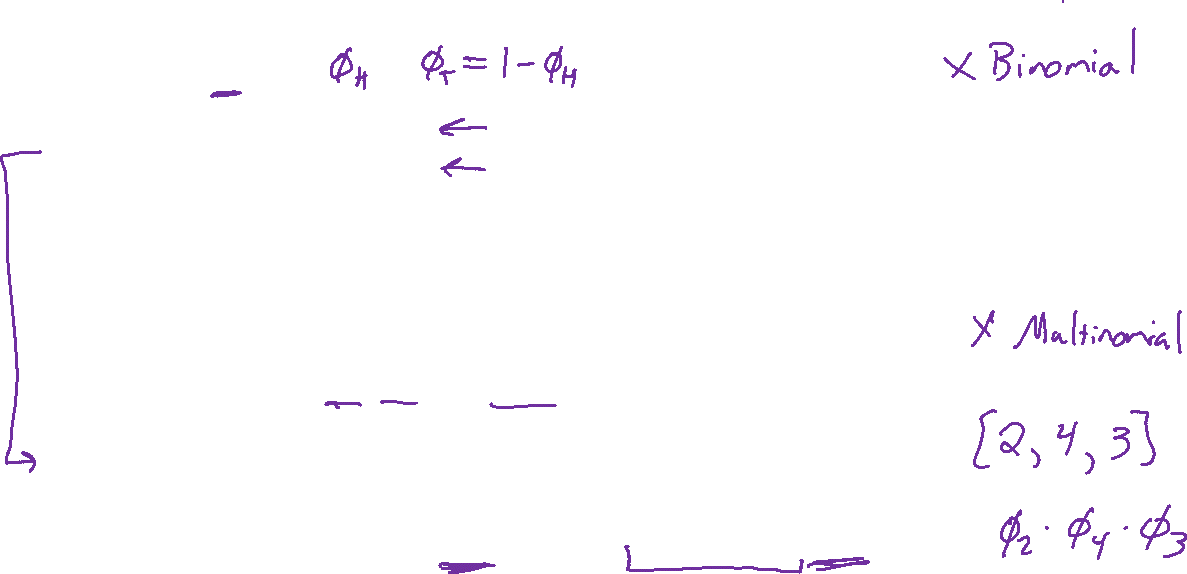 ϕ_H ϕ_T = 1 - ϕ_H
x Binomial
x Multinomial
[2, 4, 3]
ϕ_2 · ϕ_4 · ϕ_3